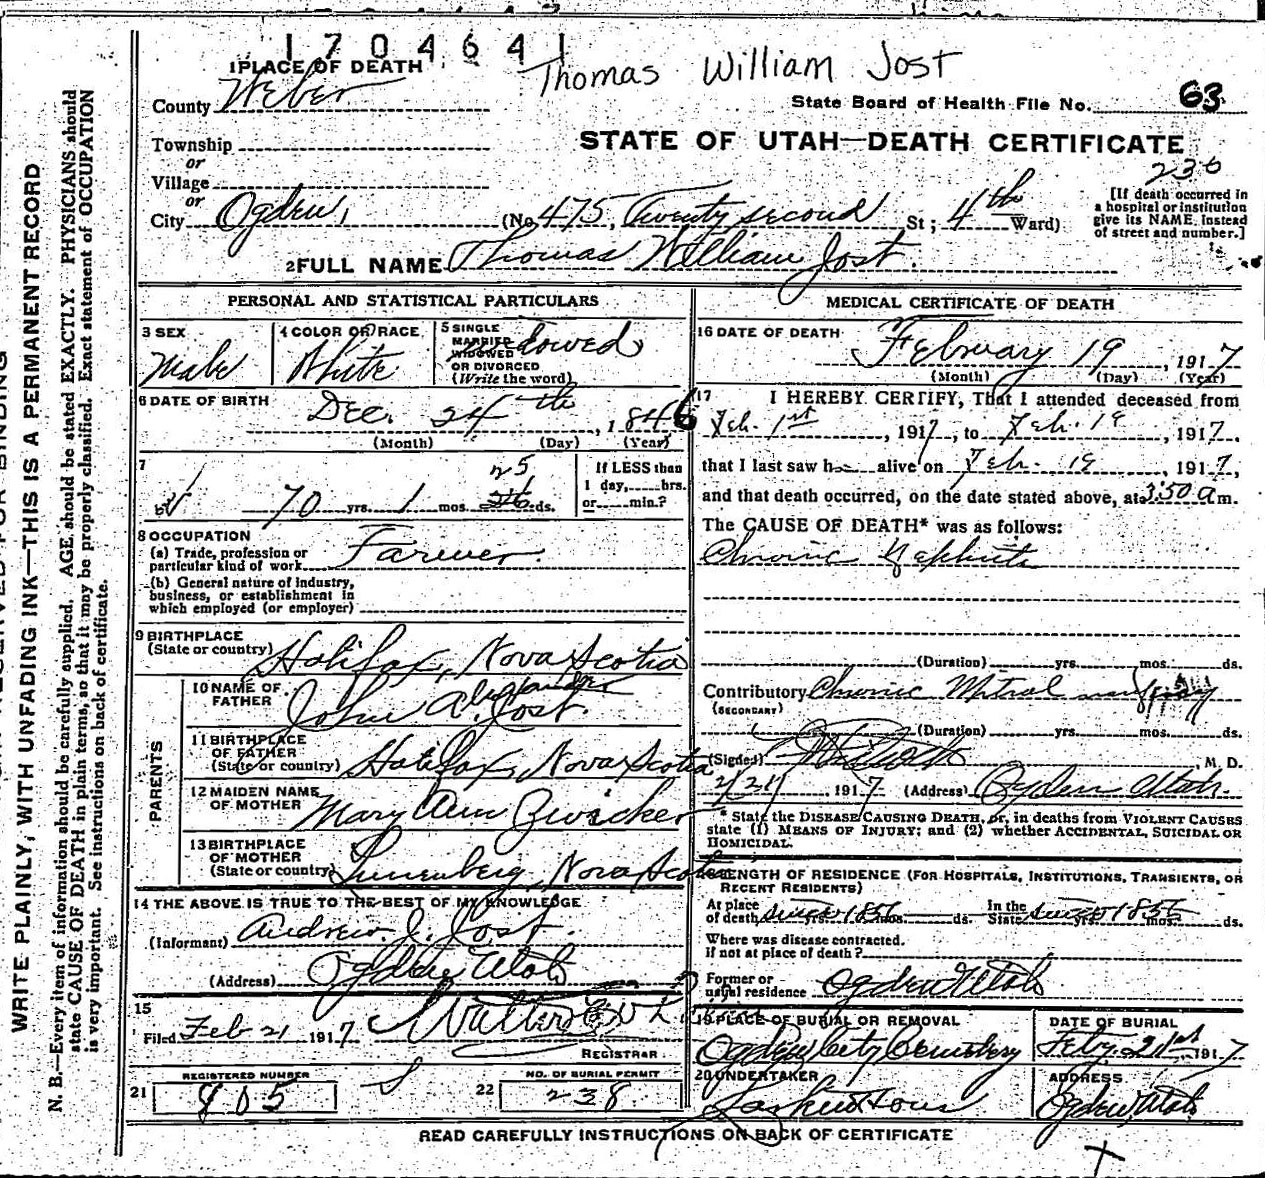 1704641
Thomas William Jost
1 PLACE OF DEATH
County Weber
State Board of Health File No. 63
STATE OF UTAH—DEATH CERTIFICATE
Township
or
Village
or
City Ogden, (No. 475, Twenty second St; 4th Ward)
236
[If death occurred in
a hospital or institution
give its NAME instead
of street and number.]
2 FULL NAME Thomas William Jost.
PERSONAL AND STATISTICAL PARTICULARS
3 SEX
Male
4 COLOR OR RACE
White
5 SINGLE
MARRIED
WIDOWED
OR DIVORCED
(Write the word)
6 DATE OF BIRTH
Dec. 24th, 1846
(Month) (Day) (Year)
7
25
70 yrs. 1 mos. ds.
If LESS than
1 day, hrs.
or min.?
8 OCCUPATION
(a) Trade, profession or
particular kind of work Farmer.
(b) General nature of industry,
business, or establishment in
which employed (or employer)
9 BIRTHPLACE
(State or country) Halifax, Nova Scotia
PARENTS
10 NAME OF
FATHER John Alexander Jost.
11 BIRTHPLACE
OF FATHER
(State or country) Halifax, Nova Scotia
12 MAIDEN NAME
OF MOTHER Mary Ann Zwicker
13 BIRTHPLACE
OF MOTHER
(State or country) Lunenberg, Nova Scotia
14 THE ABOVE IS TRUE TO THE BEST OF MY KNOWLEDGE
(Informant) Andrew J. Jost.
(Address) Ogden Utah
15
Filed Feb 21 1917
REGISTRAR
21 REGISTERED NUMBER
805
22 NO. OF BURIAL PERMIT
238
MEDICAL CERTIFICATE OF DEATH
16 DATE OF DEATH
February 19, 1917
(Month) (Day) (Year)
17 I HEREBY CERTIFY, That I attended deceased from
Feb. 1st, 1917, to Feb. 19, 1917.
that I last saw h alive on Feb. 19, 1917,
and that death occurred, on the date stated above, at 3:50 a m.
The CAUSE OF DEATH* was as follows:
Chronic Nephritis
(Duration) yrs. mos. ds.
Contributory Chronic Mitral
(SECONDARY)
(Duration) yrs. mos. ds.
(Signed) , M. D.
2/21, 1917 (Address) Ogden Utah.
* State the DISEASE CAUSING DEATH, or, in deaths from VIOLENT CAUSES
state (1) MEANS OF INJURY; and (2) whether ACCIDENTAL, SUICIDAL OR
HOMICIDAL.
LENGTH OF RESIDENCE (FOR HOSPITALS, INSTITUTIONS, TRANSIENTS, OR
RECENT RESIDENTS)
At place
of death since yrs. mos. ds. In the
State since yrs. mos. ds.
Where was disease contracted.
if not at place of death?
Former or
usual residence Ogden Utah
19 PLACE OF BURIAL OR REMOVAL
Ogden City Cemetery
DATE OF BURIAL
Feby. 21st 1917
20 UNDERTAKER
ADDRESS
Ogden Utah
READ CAREFULLY INSTRUCTIONS ON BACK OF CERTIFICATE
WRITE PLAINLY, WITH UNFADING INK—THIS IS A PERMANENT RECORD
N. B.—Every item of information should be carefully supplied. AGE should be stated EXACTLY. PHYSICIANS should
state CAUSE OF DEATH in plain terms, so that it may be properly classified. Exact statement of OCCUPATION
is very important. See instructions on back of certificate.